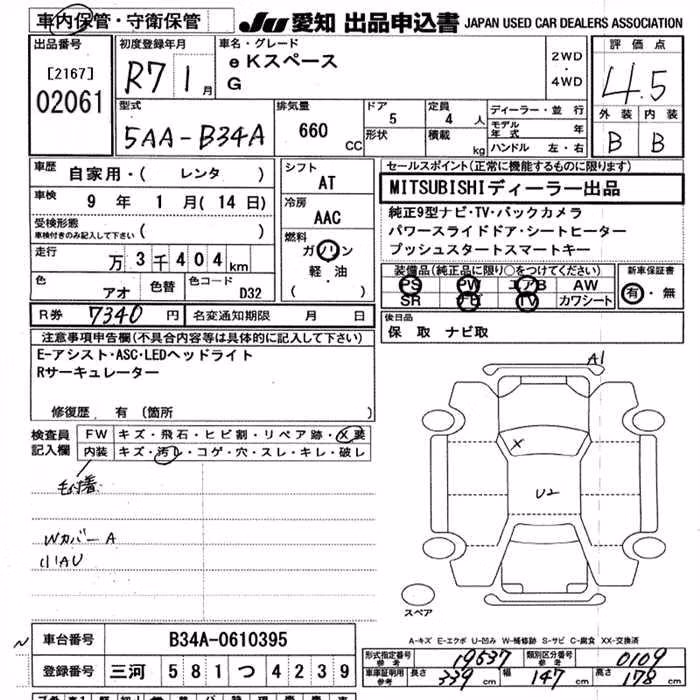 車内保管・守衛保管
JU 愛知 出品申込書 JAPAN USED CAR DEALERS ASSOCIATION
出品番号
[2167]
02061
初度登録年月
R7 1月
車名・グレード
eKスペース
G
2WD
・
4WD
評価点
4.5
外装 内装
B B
型式
5AA-B34A
排気量
660 CC
ドア
5
形状
定員
4 人
積載
kg
ディーラー・並行
モデル年式 年
ハンドル 左・右
車歴 自家用・( レンタ )
車検 9年 1月(14日)
受検形態
車検付きのみ記入して下さい ( )
走行 万3千404km
色 アオ 色替 色コード D32
シフト
AT
冷房
AAC
燃料
ガソリン
軽・油
( )
セールスポイント(正常に機能するものに限ります)
MITSUBISHIディーラー出品
純正9型ナビ・TV・バックカメラ
パワースライドドア・シートヒーター
プッシュスタートスマートキー
装備品(純正品に限り○をつけてください)
PS PW エアB AW
SR ナビ TV カワシート
新車保証書
有・無
R券 7340円 名変通知期限 月 日
後日品
保 取 ナビ取
注意事項申告欄(不具合内容等は具体的に記入して下さい)
E-アシスト・ASC・LEDヘッドライト
Rサーキュレーター
修復歴 有(箇所 )
検査員記入欄
FW キズ・飛石・ヒビ割・リペア跡・X要
内装 キズ・汚れ・コゲ・穴・スレ・キレ・破レ
WカバーA
小AU
A1
X
U2
スペア
A-キズ E-エクボ U-凹み W-補修跡 S-サビ C-腐食 XX-交換済
車台番号 B34A-0610395
登録番号 三河 581 つ 4239
形式指定番号 参考 19637 類別区分番号 参考 0109
車庫証明用 参考 長さ 339cm 幅 147cm 高さ 178cm